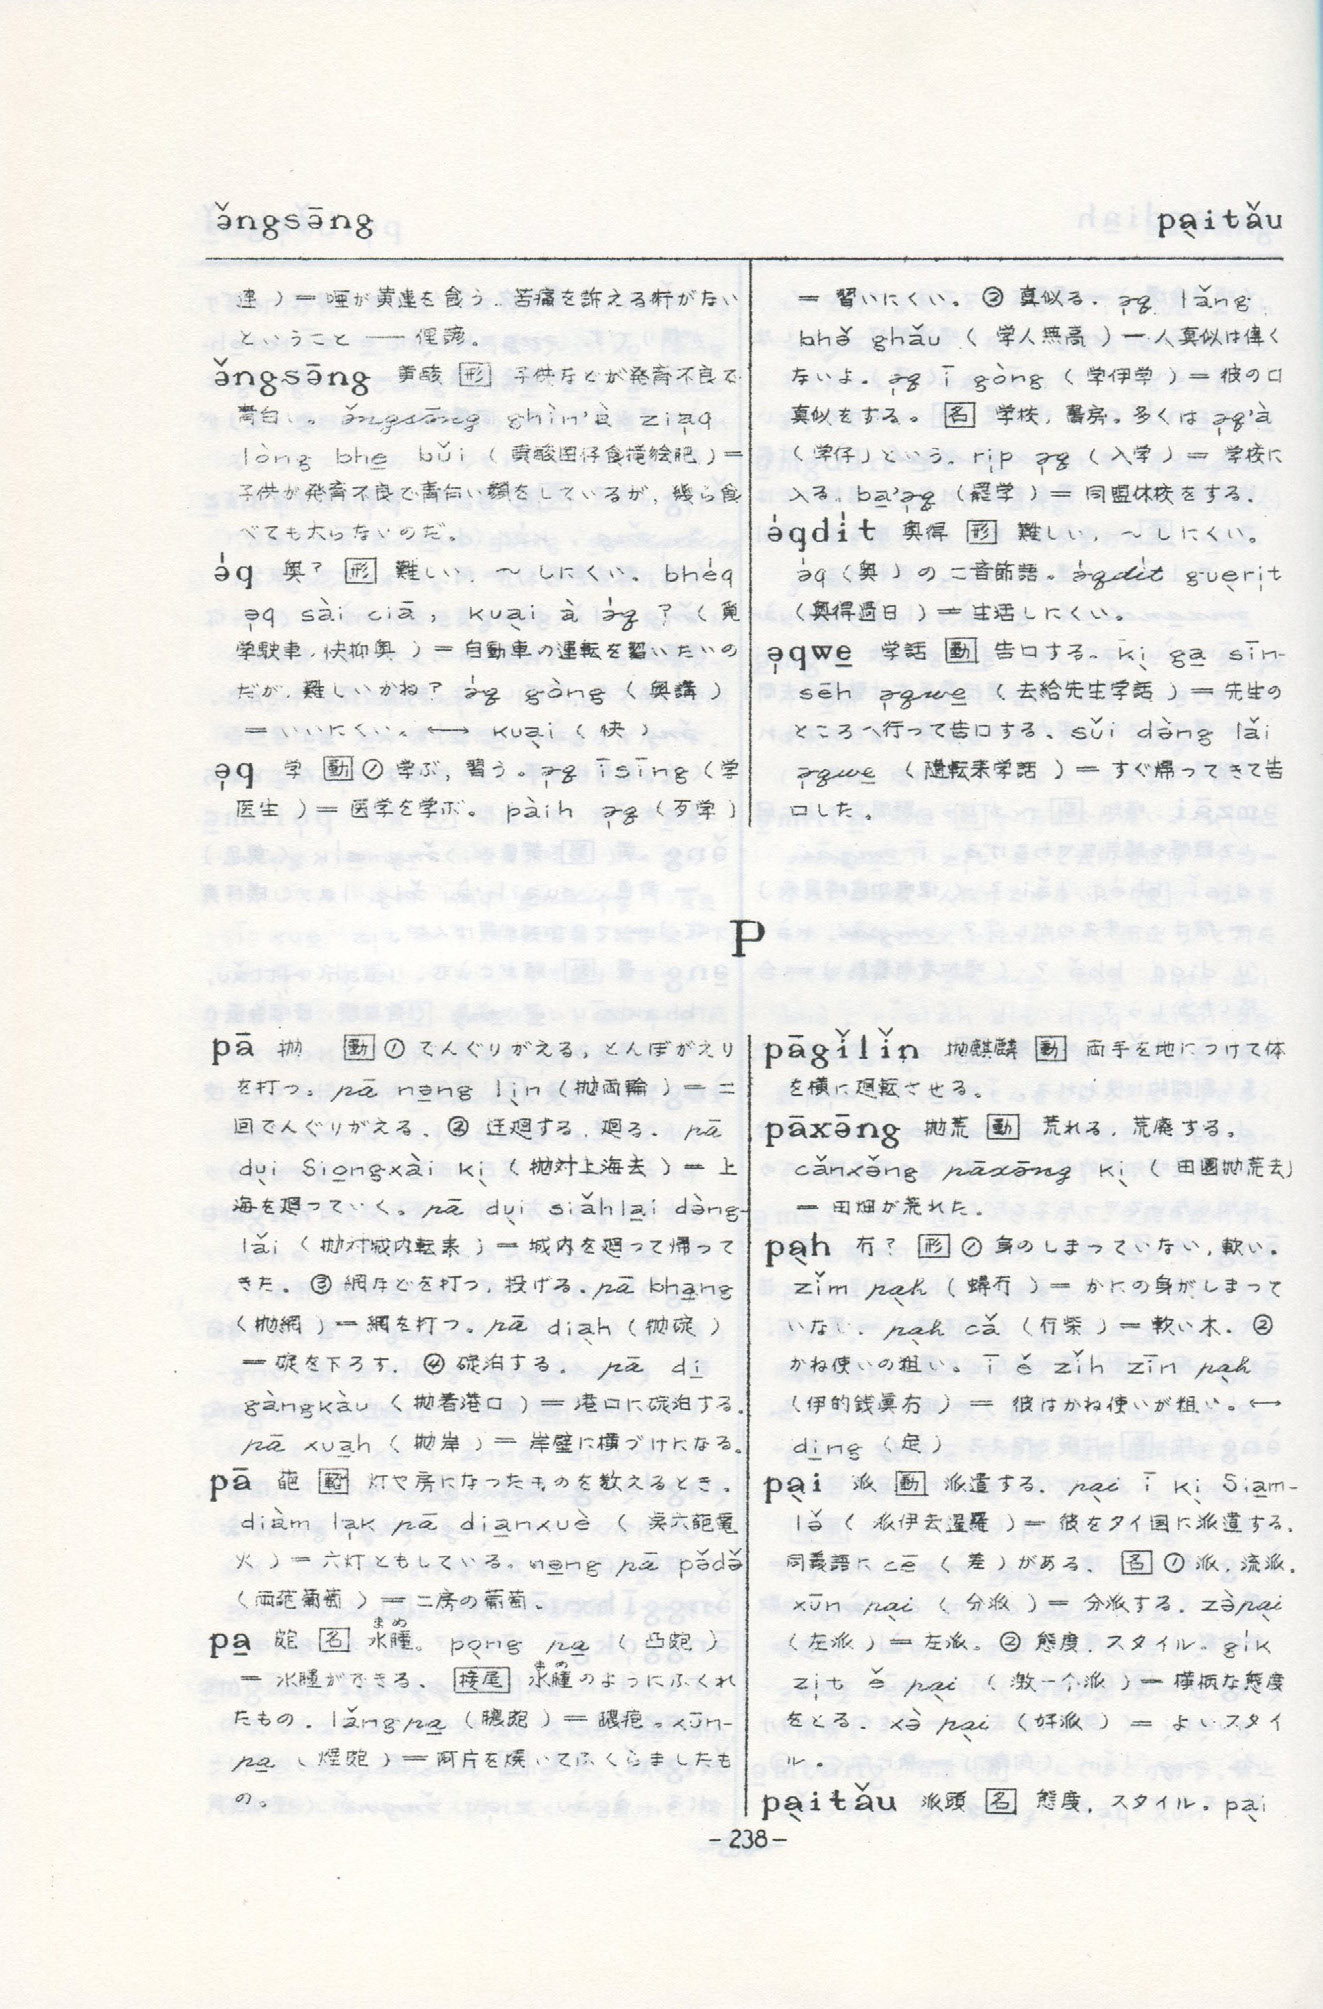 ə̌ngsə̄ng
pa̩itǎu
連）＝唖が黄連を食う．苦痛を訴える術がない
ということ ―― 俚諺。
ə̌ngsə̄ng 黄酸 形 子供などが発育不良で
青白い。ə̌ngsə̄ng ghìn'à zia̩q
lòng bhe̱ bǔi（黄酸囝仔食攏繪肥）＝
子供が発育不良で青白い顔をしているが，幾ら食
べても太らないのだ。
ə̍q 奥？ 形 難しい，～しにくい。bhe̍q
ə̩q sài ciā, kua̩i à ə̍q ?（覓
学駛車，快抑奥）＝自動車の運転を習いたいの
だが，難しいかね？ ə̍q gòng（奥講）
＝いいにくい。←→ kua̩i（快）
ə̩q 学 動 ①学ぶ，習う。ə̩q īsīng（学
医生）＝医学を学ぶ。pàih ə̩q（歹学）
＝ 習いにくい。② 真似る．ə̩q lǎng
bhə̌ ghǎu（学人無高）＝人真似は偉く
ないよ．ə̩q ī gòng（学伊学）＝彼の口
真似をする。 名 学校，書房。多くは ə̩q'à
（学仔）という。ri̩p ə̩q（入学）＝ 学校に
入る．ba̱'ə̩q（罷学）＝ 同盟休校をする．
ə̍qdi̍t 奥得 形 難しい，～しにくい。
ə̍q（奥）の二音節語．ə̍qdi̍t gue̱ri̩t
（奥得過日）＝生活しにくい。
ə̩qwe̱ 学話 動 告口する．ki̩ ga̱ sīn-
sēh ə̩qwe̱（去給先生学話）＝先生の
ところへ行って告口する．sǔi də̀ng lǎi
ə̩qwe̱（随転来学話）＝すぐ帰ってきて告
口した。
P
pā 抛 動 ① でんぐりがえる，とんぼがえり
を打つ．pā nə̱ng li̩n（抛両輪）＝ 二
回でんぐりがえる．② 迂廻する，廻る．pā
du̩i Sio̱ngxài ki̩（抛対上海去）＝上
海を廻っていく。pā du̩i siǎhla̱i də̀ng-
lǎi（抛対城内転来）＝城内を廻って帰って
きた．③ 網などを打つ，投げる．pā bha̱ng
（抛網）＝網を打つ。pā dia̩h（抛碇）
＝碇を下ろす．④ 碇泊する． pā di̱
gàngkàu（抛着港口）＝港口に碇泊する．
pā xua̱h（抛岸）＝岸壁に横づけになる．
pā 葩 範 灯や房になったものを数えるとき．
diàm la̩k pā dia̱nxuè（点六葩電
火）＝六灯ともしている。nə̱ng pā pə̌də̌
（両葩葡萄）＝二房の葡萄．
pa̱ 皰 名 水腫。pə̩ng pa̱（凸皰）
まめ
＝水腫ができる． 接尾 水腫のようにふくれ
まめ
たもの．lǎngpa̱（膿皰）＝膿疱．xūn-
pa̱（煙皰）＝阿片を焼いてふくらましたも
の。
pāgǐlǐn 抛麒麟 動 両手を地につけて体
を横に廻転させる。
pāxə̄ng 抛荒 動 荒れる，荒廃する。
cǎnxə̌ng pāxə̄ng ki̩（田園抛荒去）
＝田畑が荒れた．
pa̩h 冇？ 形 ①身のしまっていない，軟い。
zǐm pa̩h（蟳冇）＝かにの身がしまって
いない．pa̩h cǎ（冇柴）＝軟い木．②
かね使いの粗い。ī ě zǐh zīn pa̩h
（伊的銭眞冇）＝ 彼はかね使いが粗い。←→
di̱ng（定）
pa̩i 派 動 派遣する．pa̩i ī ki̩ Sia̱m-
lə̌（派伊去暹羅）＝彼をタイ国に派遣する．
同義語に cē（差）がある． 名 ①派，流派．
xūn pa̩i（分派）＝分派する．zə̀pa̩i
（左派）＝左派。② 態度，スタイル．gi̍k
zi̩t ě pa̩i（激一个派）＝横柄な態度
をとる．xə̀ pa̩i（好派）＝ よいスタイ
ル。
pa̩itǎu 派頭 名 態度，スタイル。pa̩i
－238－